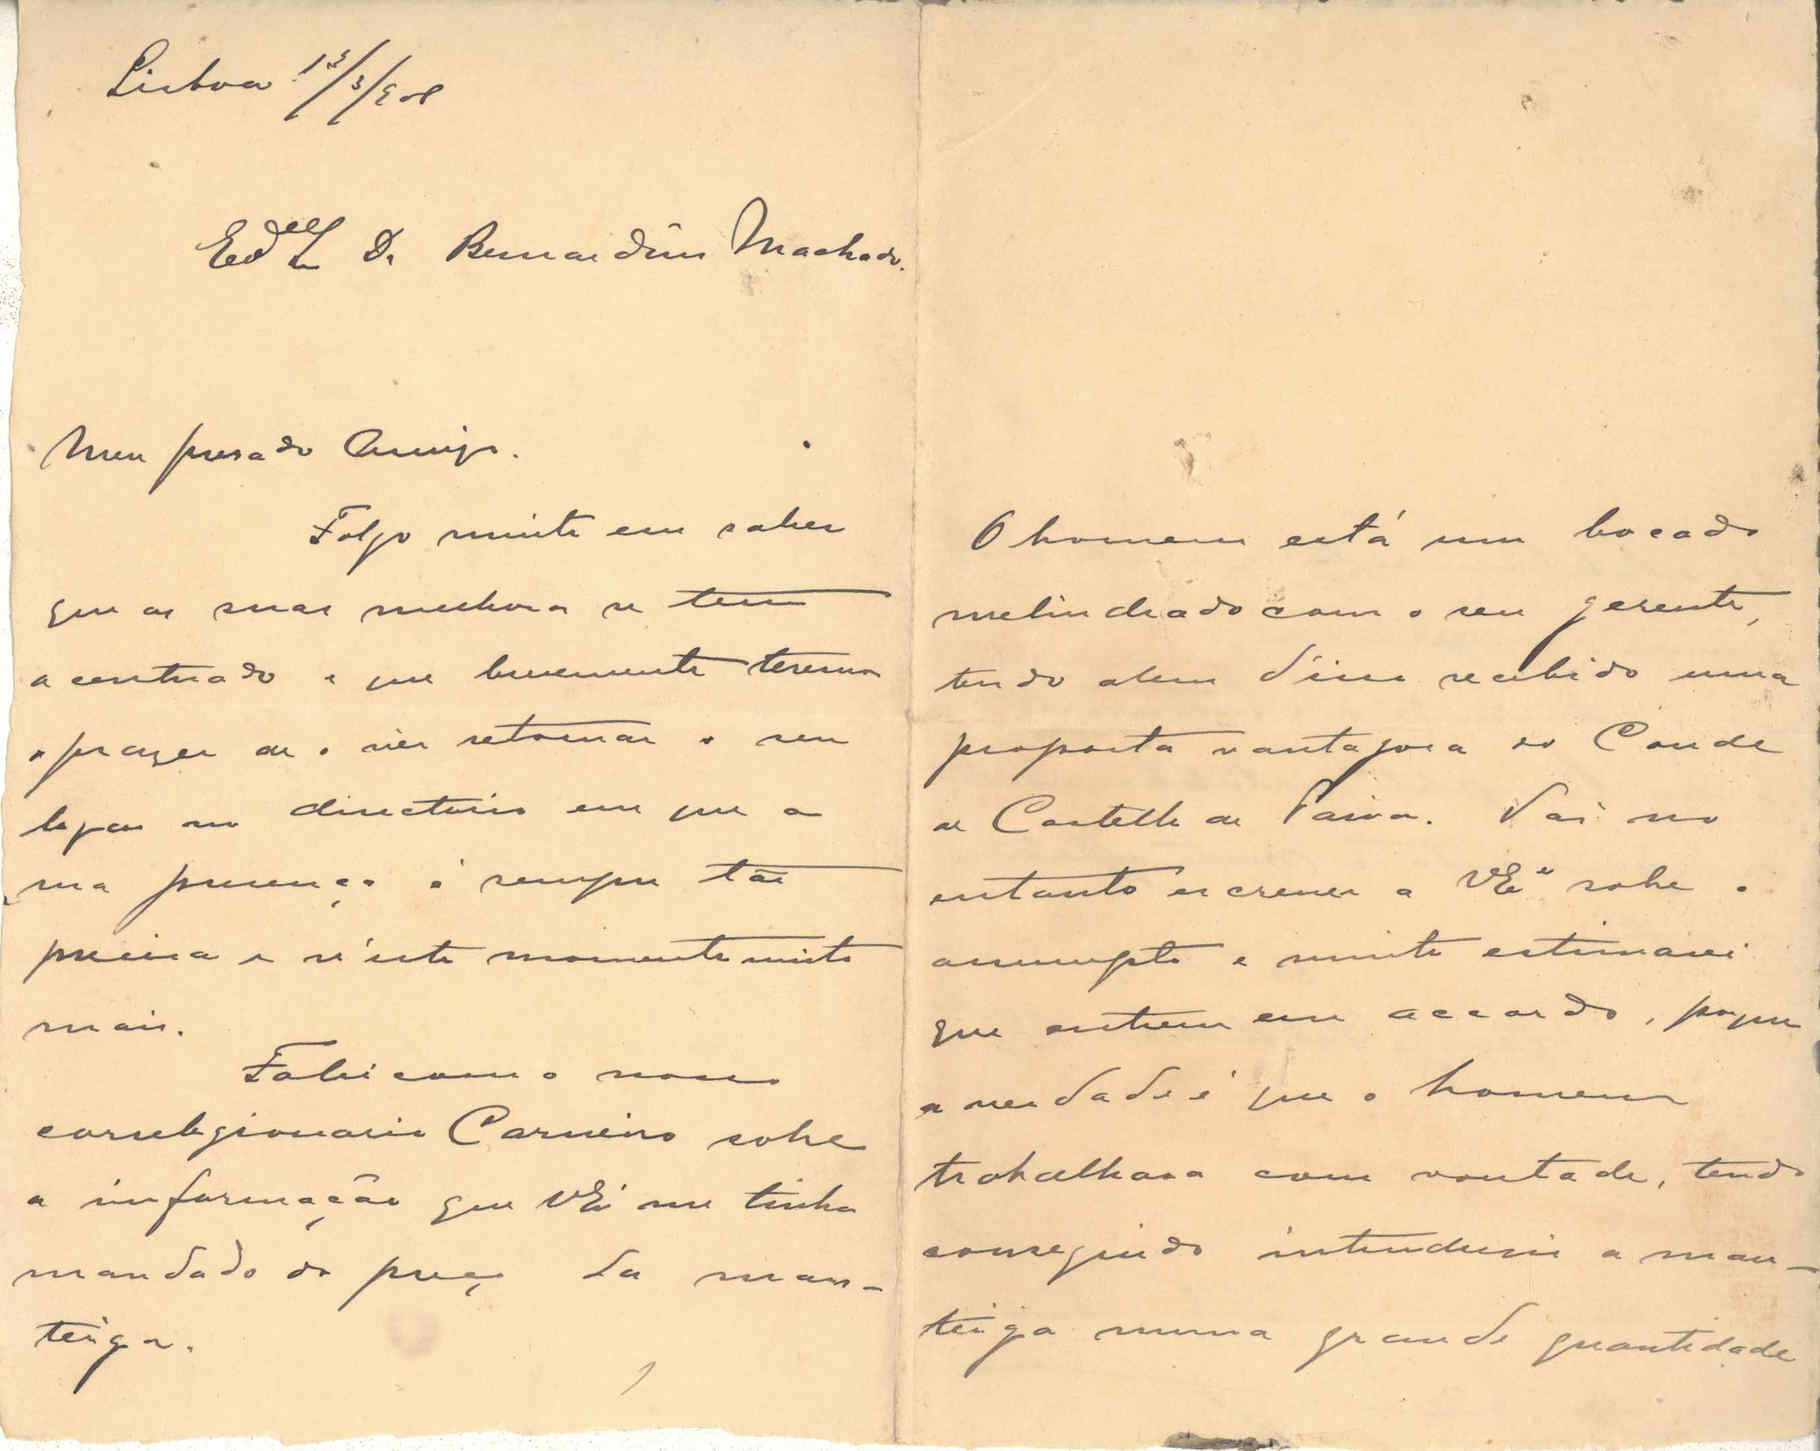 Lisboa 13/3/908
Dr Bernardino Machado.
Meu presado Amigo.
Folgo muito em saber
que as suas melhoras se tem
acentuado e que brevemente teremos
o prazer de o ver retomar o seu
logar no directorio em que a
sua presença é sempre tão
precisa e n'este momento muito
mais.
Falei com o nosso
correlegionario Carneiro sobre
a informação que VExa me tinha
mandado do preço da man-
teiga.
O homem está um bocado
melindrado com o seu gerente,
tendo alem d'isso recebido uma
proposta vantajosa do Conde
de Castello de Paiva. Vai no
entanto escrever a VExa sobre o
assumpto e muito estimarei
que entrem em accordo, porque
a verdade é que o homem
trabalhava com vontade, tendo
conseguido introdusir a man-
teiga numa grande quantidade